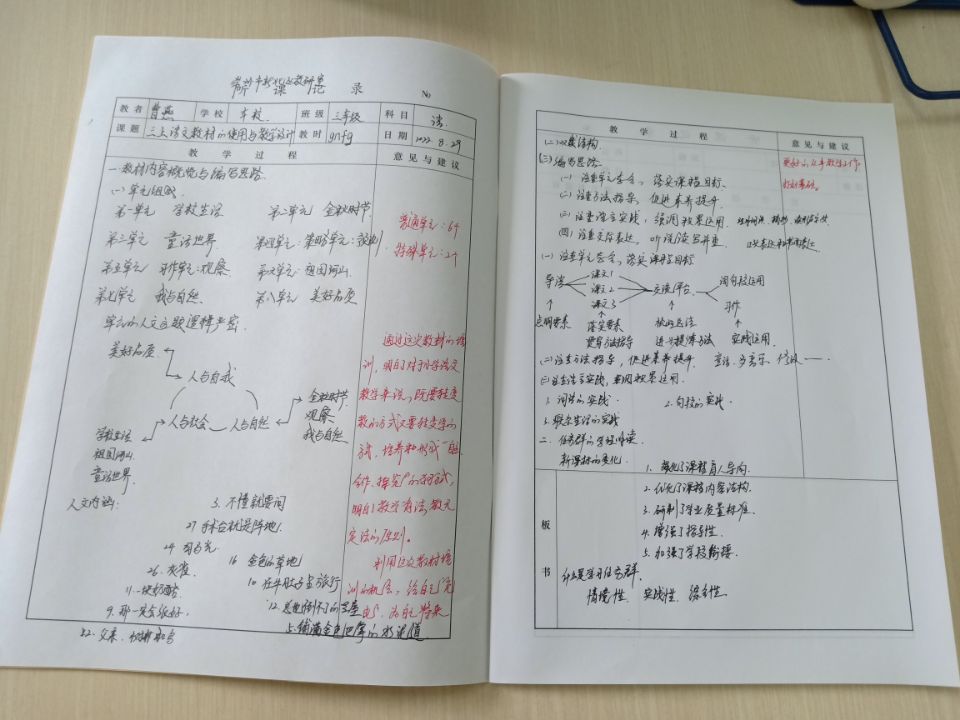 听课记录
No
教者 曹燕 学校 本校 班级 三年级 科目 语
课题 三上语文教材的使用与教学设计 教时 日期 2022.8.29
教学过程 意见与建议
一教材内容概览与编写思路
(一)单元组织
第一单元 学校生活 第二单元 金秋时节
第三单元 童话世界 第四单元:策略单元:预测
第五单元 习作单元:观察 第六单元:祖国河山
第七单元 我与自然 第八单元 美好品质
单元的人文主题逻辑严密
美好品质
人与自我
人与社会 人与自然
金秋时节
观察
我与自然
学校生活
祖国河山
童话世界
人文内涵:
3.不懂就要问
27 手术台就是阵地
24 司马光
16 金色的草地
26.灰雀
10.在牛肚子里旅行
11.一块奶酪
9.那一定会很好
12.总也倒不了的老屋
5.铺满金色巴掌的水泥道
22.父亲、树林和鸟
普通单元:6个
特殊单元:2个
通过这次教材的培
训,明白了对于小学语文
教学来说,既要转变
教的方式又要转变学的
方式,培养和形成"自主
合作、探究"的学习方式,
明白教学有法,教无
定法的原则。
利用这次教材培
训的机会,给自己"充
电",为自己将来
教学过程 意见与建议
(二)双线结构
(三)编写思路
(一)注重单元整合,落实课程目标.
(二)注重方法指导,促进素养提升.
(三)注重语言实践,强调效果运用
(四)注重交际表达,听说读写并重
(一)注重单元整合,落实课程目标
导语 课文1
课文2 交流平台 词句段运用
课文3 习作
点明要素 落实要素
实践运用
(二)注重方法指导,促进素养提升
(三)注重语言实践,强调效果运用.
1.词语的实践 2.句段的实践
3.联系生活的实践
二、任务群的学理解读
新课标的变化.
1.强化了课程育人导向.
板书
2.优化了课程内容结构.
3.研制了学业质量标准.
4.增强了指导性.
5.加强了学段衔接.
什么是学习任务群.
情境性、实践性、综合性
更好的从事教学工作
打好基础。